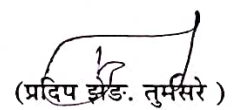 (प्रदिप झेङ. तुमसरे )